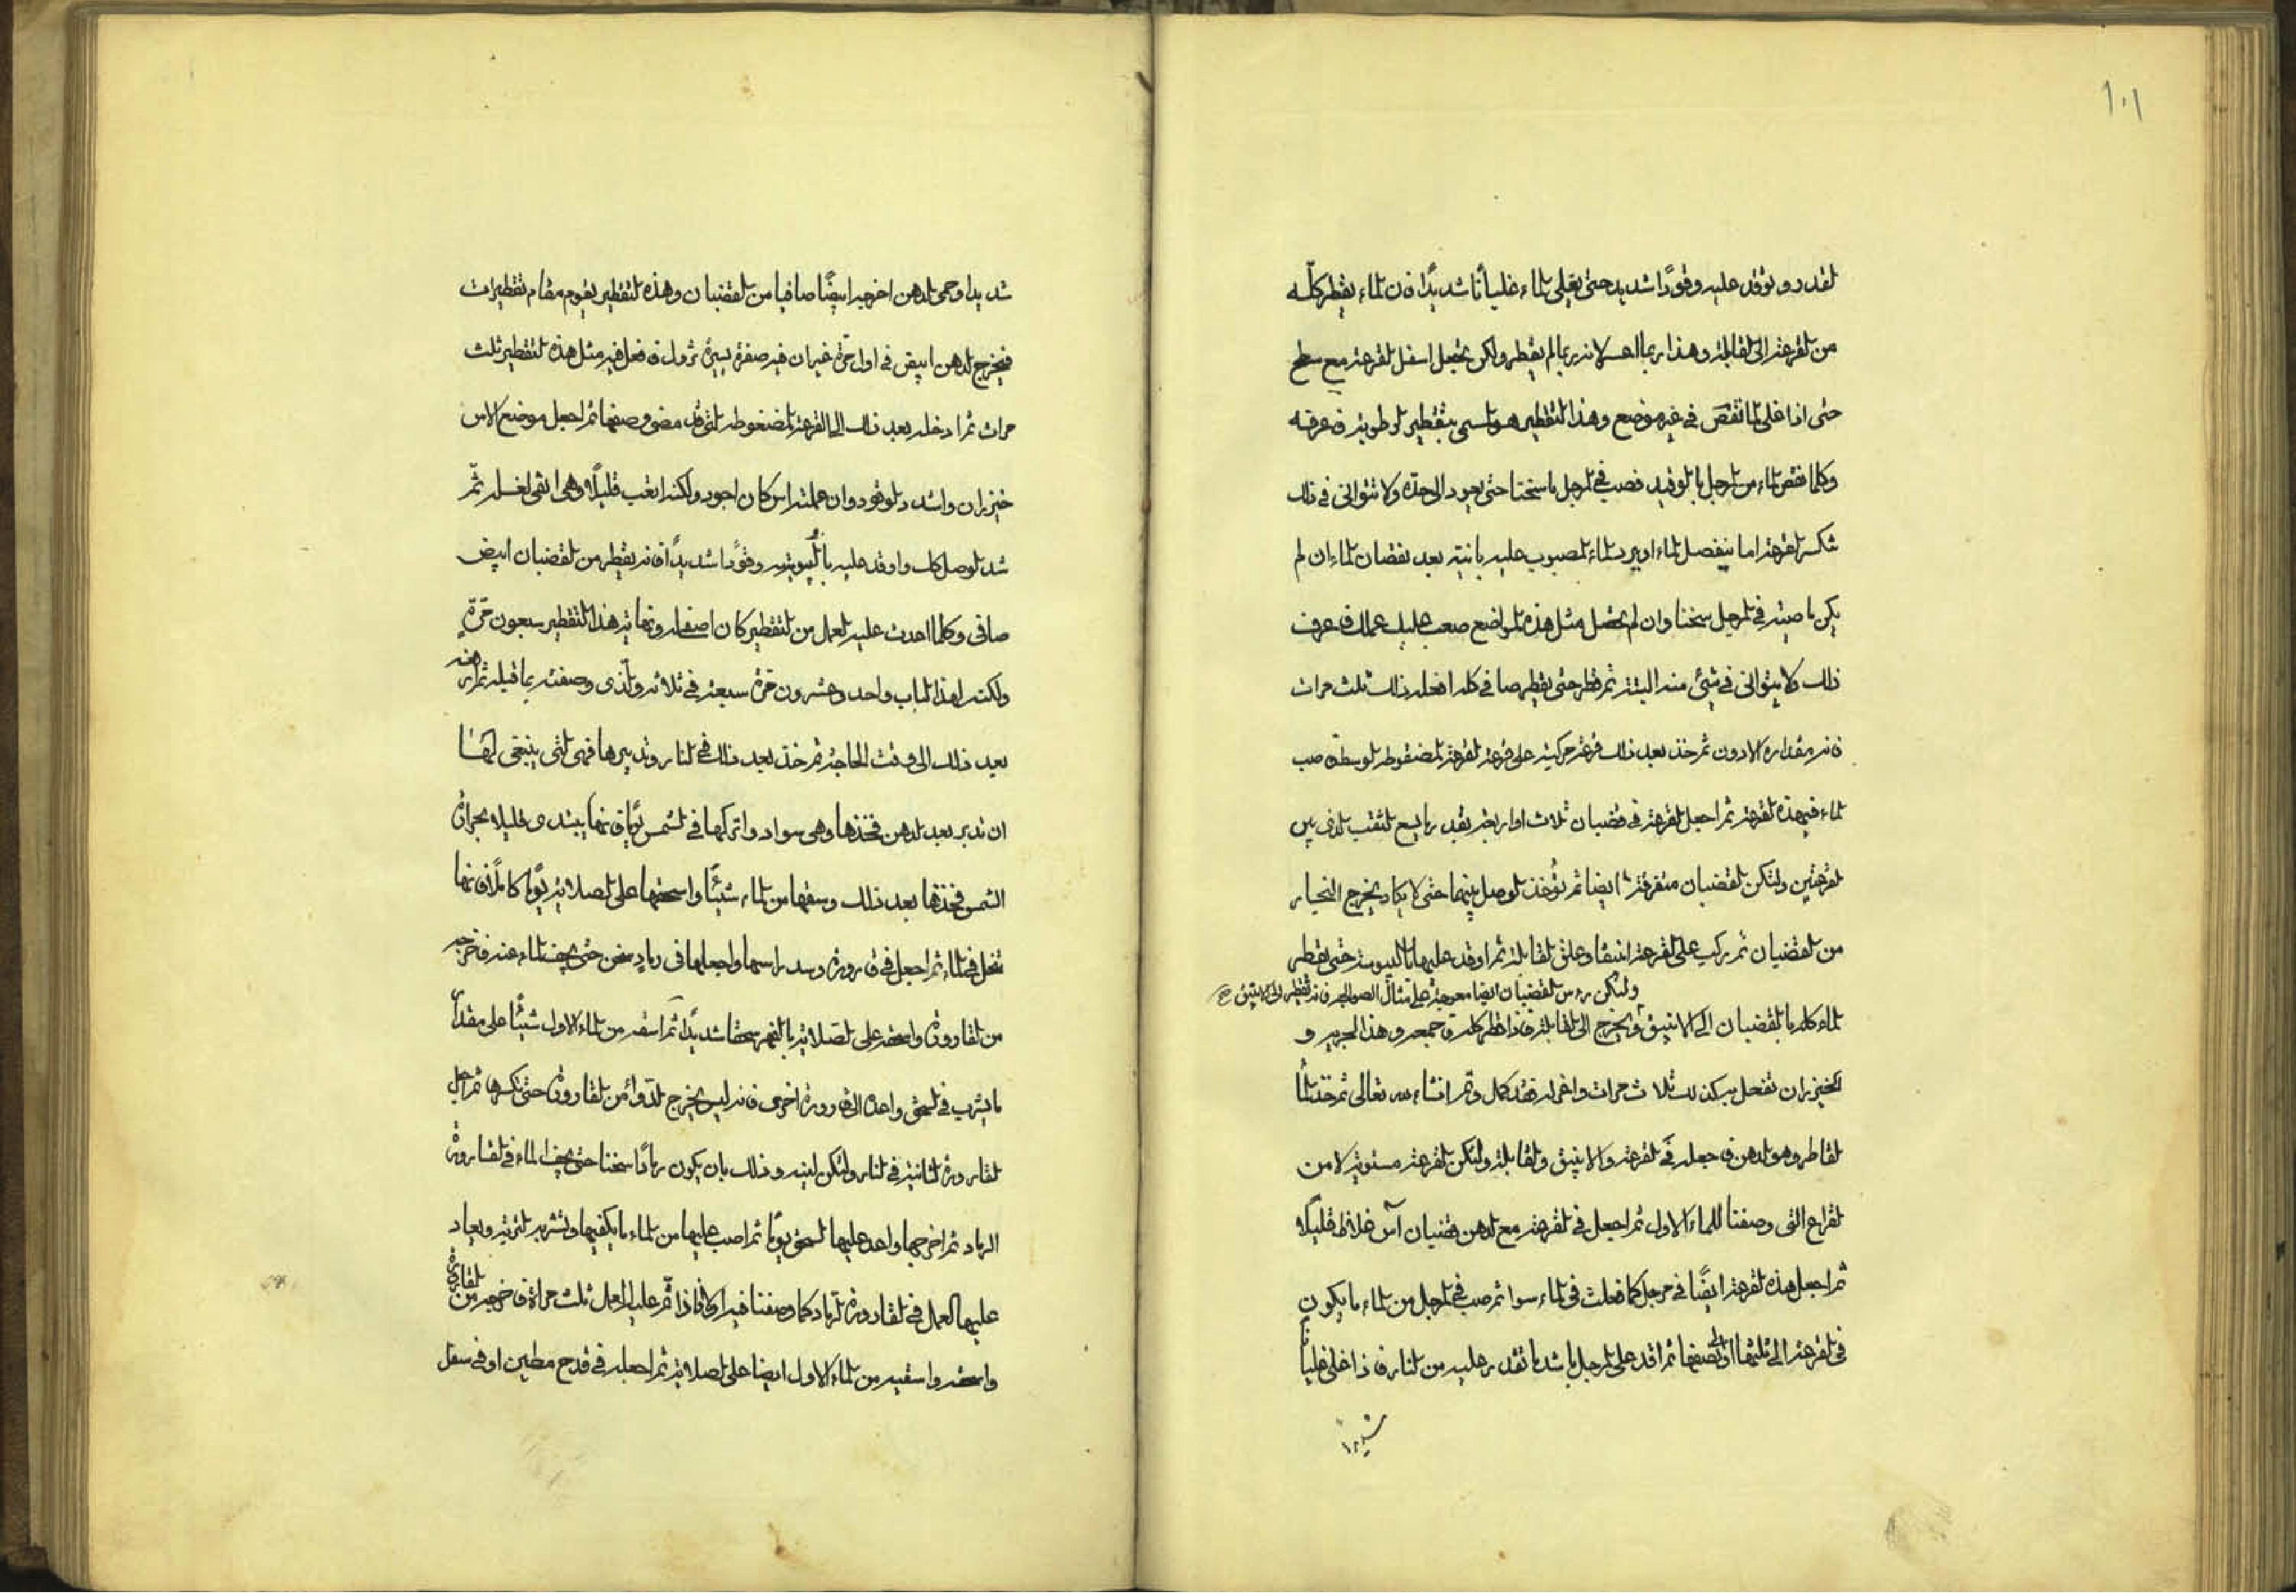 ١٠١
لقدر ويوقد عليه وقودًا شديد حتى يغلى الماء غليانًا شديدًا فان الماء يقطر كلّه
من القرعة الى القابلة وهذا ربما لانه ربما لم يقطر ولكن تجعل اسفل القرعة مع سطح
حتى اذا غلى لما نقص فى غير موضع وهذا التقطير هو المسمى بتقطير الرطوبة فاعرفه
وكلما نقص الماء من المرجل بالوقيد فصب فى المرجل ما سخنا حتى يعود الى حده ولا تتوانى فى ذلك
تكسر القرعة اما ينفصل الماء او يبرد الماء المصبوب عليه بانية بعد نقصان الماء ان لم
يكن ما صبته فى المرجل سخنا وان لم تحصل مثل هذه المواضع صعب عليك عملك فاعرف
ذلك ولا يتوانى فى شىء منه البتة ثم قطر حتى يقطر صافى كله افعل ذلك ثلث مرات
فانه مقداره الادون ثم خذ بعد ذلك قرعة مركبة على قرعة القرعة المضغوطة الوسط صب
الماء فى هذه القرعة ثم اجعل القرعة فى قضبان ثلاث او اربعة بقدر ما يسع الثقب الذى بين
القرعتين ولتكن القضبان متفرقة ايضا ثم يؤخذ الوصل بينهما حتى لا يكاد يخرج البخار
من القضبان ثم يركب على القرعة انبيقا وعلق القابلة ثم اوقد عليها باليبوسة حتى يقطر
ولتكن رءس القضبان ايضا معوجة على مثال الصوالجة فانه تقطر الى الانبيق صح
الماء كله بالقضبان الى الانبيق ويخرج الى القابلة فاذا قطر كله فاجمعه وهذا الجرير و
الخيزران تفعل به كذلك ثلاث مرات واغمر له فقد كمل وتم انشاء الله تعالى ثم خذ الماء
القاطر وهو الدهن فاجعله فى القرعة والانبيق والقابلة ولتكن القرعة مستوية لا من
القراع التى وصفنا للماء الاول ثم اجعل فى القرعة مع الدهن قضبان آس غلاظ قليلًا
ثم اجعل هذه القرعة ايضًا فى مرجل كما فعلت فى الماء سوا ثم صب فى المرجل من الماء ما يكون
فى القرعة الى ثلثها او الى نصفها ثم اوقد على المرجل باشد ما تقدر عليه من النار فاذا غلى غليانًا
شديدا
شديدا وحمى الدهن اخرجه ايضًا صافيا من القضبان وهذه التقطير يقوم مقام تقطيرات
فيخرج الدهن ابيض فى اول مرة غير ان فيه صفرة يسيرة تزول فافعل فيه مثل هذه التقطير ثلث
مرات ثم ادخله بعد ذلك الى القرعة المضغوطة التى قد مضى وصفها ثم اجعل موضع الاس
خيزران واشدد الوقود وان عملته اس كان اجود ولكنه اتعب قليلًا وهى انقى لغسله ثمّ
شد الوصل كله واوقد عليه باليبوسة وقودًا شديدًا فانه يقطر من القضبان ابيض
صافى وكلما اعدت عليه العمل من التقطير كان اصفى له ونهاية هذا التقطير سبعون مرّةٍ
ولكنه لهذا الباب واحد وعشرون مرّة سبعة فى ثلاثة والذى وصفته بما قبله ثم ارفعه
بعد ذلك الى وقت الحاجة ثم خذ بعد ذلك فى النار وتدبيرها فهى التى ينبغى لها
ان تدبر بعد الدهن فخذها وهى سواد واتركها فى الشمس يومًا فانها يبتدى قليلا بحرارة
الشمس فخذها بعد ذلك وسقها من الماء شيئًا واسحقها على الصلاية يومًا كاملًا فانها
تنحل فى الماء ثم اجعل فى قارورة وسد راسها واجعلها فى رماد سخن حتى يجف الماء عنه فاخرجه
من القارورة واسحقه على الصلاية بالفهر سحقا شديدًا ثم اسقه من الماء الاول شيئًا على مقدار
ما يشرب فى السحق واعده الى قارورة اخرى فانه ليس يخرج الدّواء من القارورة حتى تكسرها ثم اجعل
القارورة الثانية فى النار ولتكن لينه وذلك بان يكون رمادًا سخنا حتى يجف الماء فى القارورة
الرماد ثم اخرجها واعد عليها السحق يومًا ثم اصب عليها من الماء ما يكفيها ولتشربه التربة ويعاد
عليها العمل فى القارورة الرماد كما وصفنا فيه اولا فاذا تمّ عليه العمل ثلث مراة فاخرجه من القارورة
واسحقه واسقيه من الماء الاول ايضا على الصلاية ثم اجعله فى قدح مطين او فى سفل